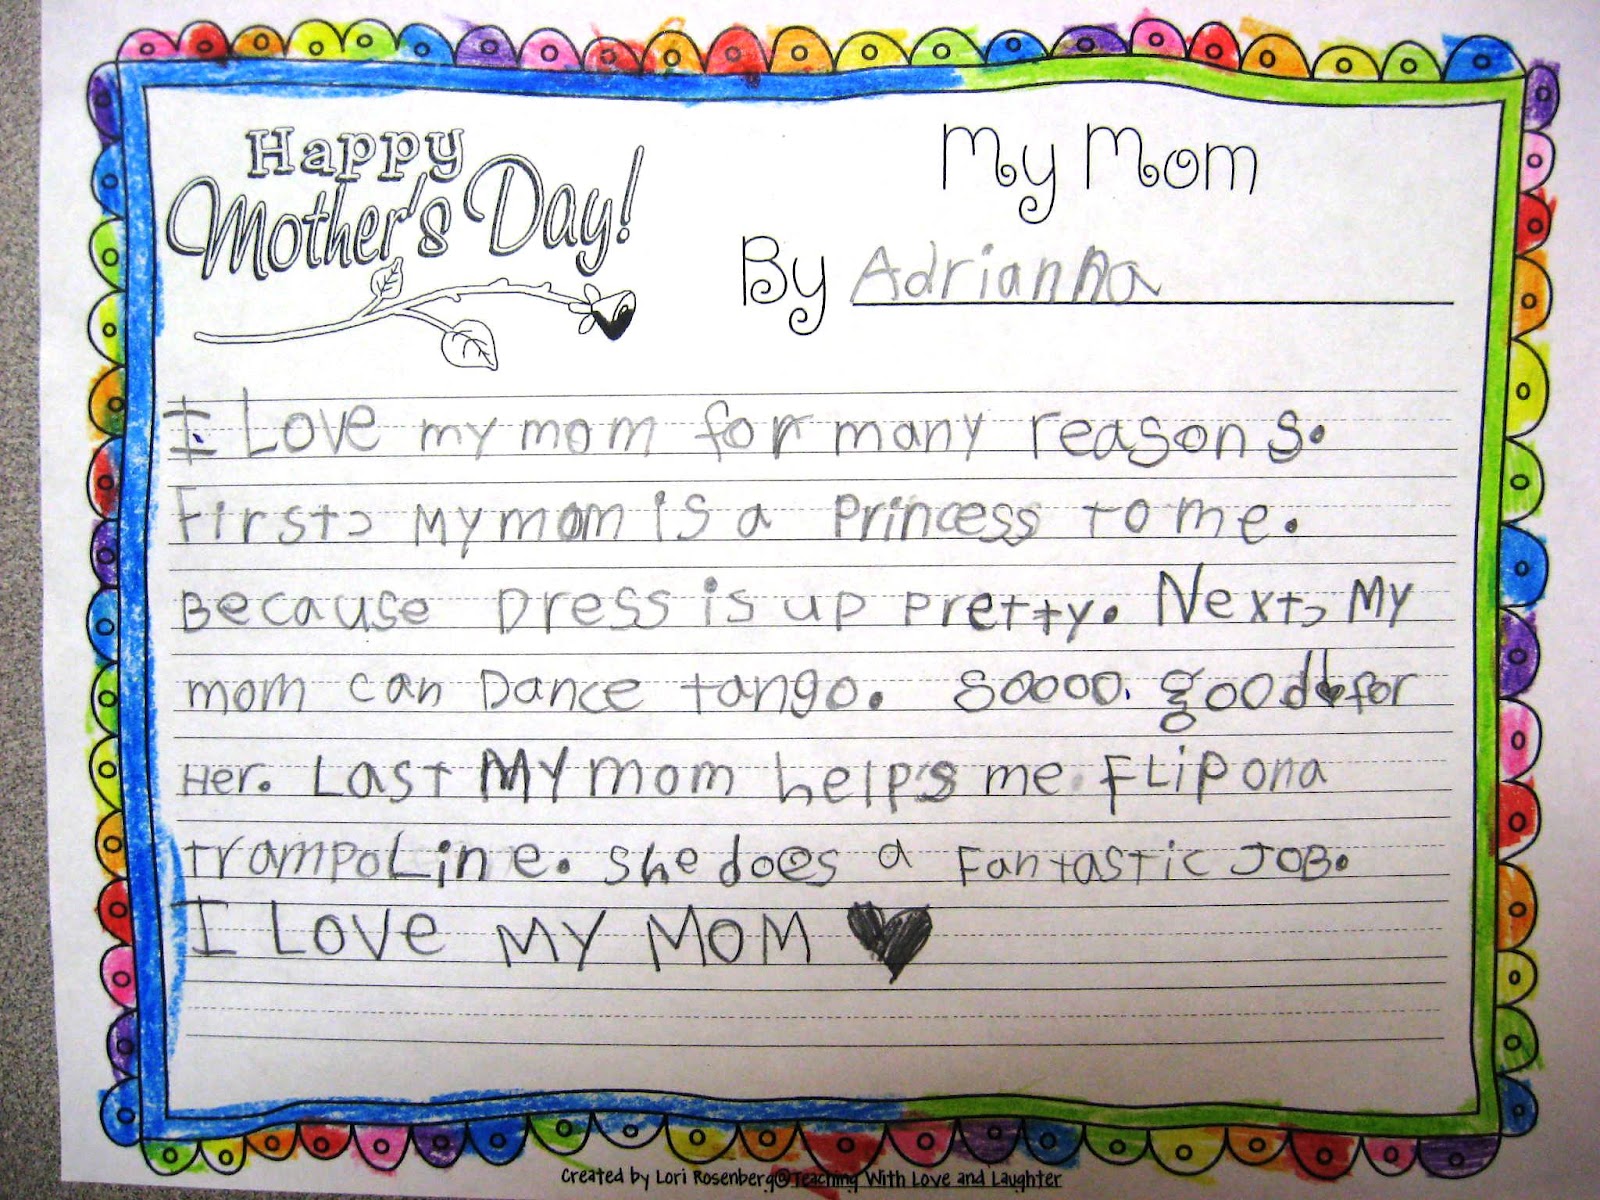 Happy
Mother's Day!
My Mom
By Adrianna
I Love my mom for many reasons.
First, My mom is a Princess to me.
Because Dress is up pretty. Next, My
mom can Dance tango. Soooo. good for
Her. Last My mom help's me FLip on a
trampoLine. She does a Fantastic JOB.
I Love MY MOM
Created by Lori Rosenberg@Teaching With Love and Laughter